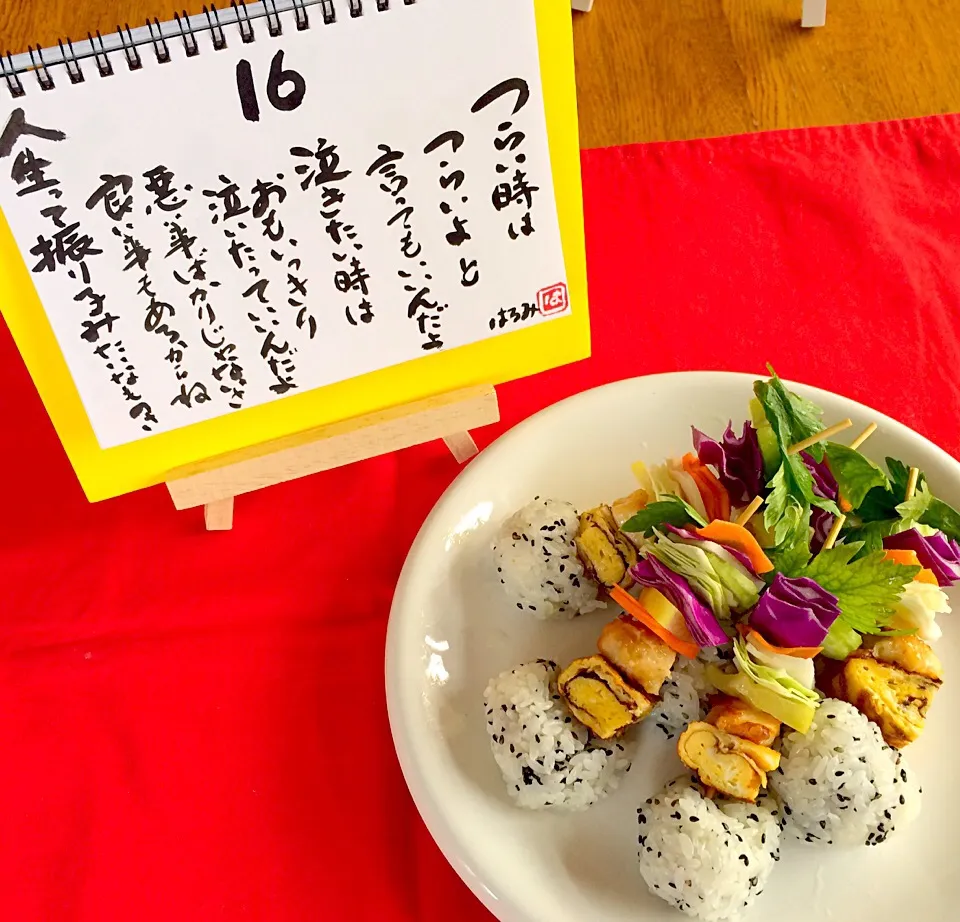 16
つらい時は
つらいよと
言ってもいいんだよ
泣きたい時は
おもいっきり
泣いたっていいんだよ
悪い事ばかりじゃないさ
良い事もあるからね
人生って振り子みたいなもの
はろみ
は